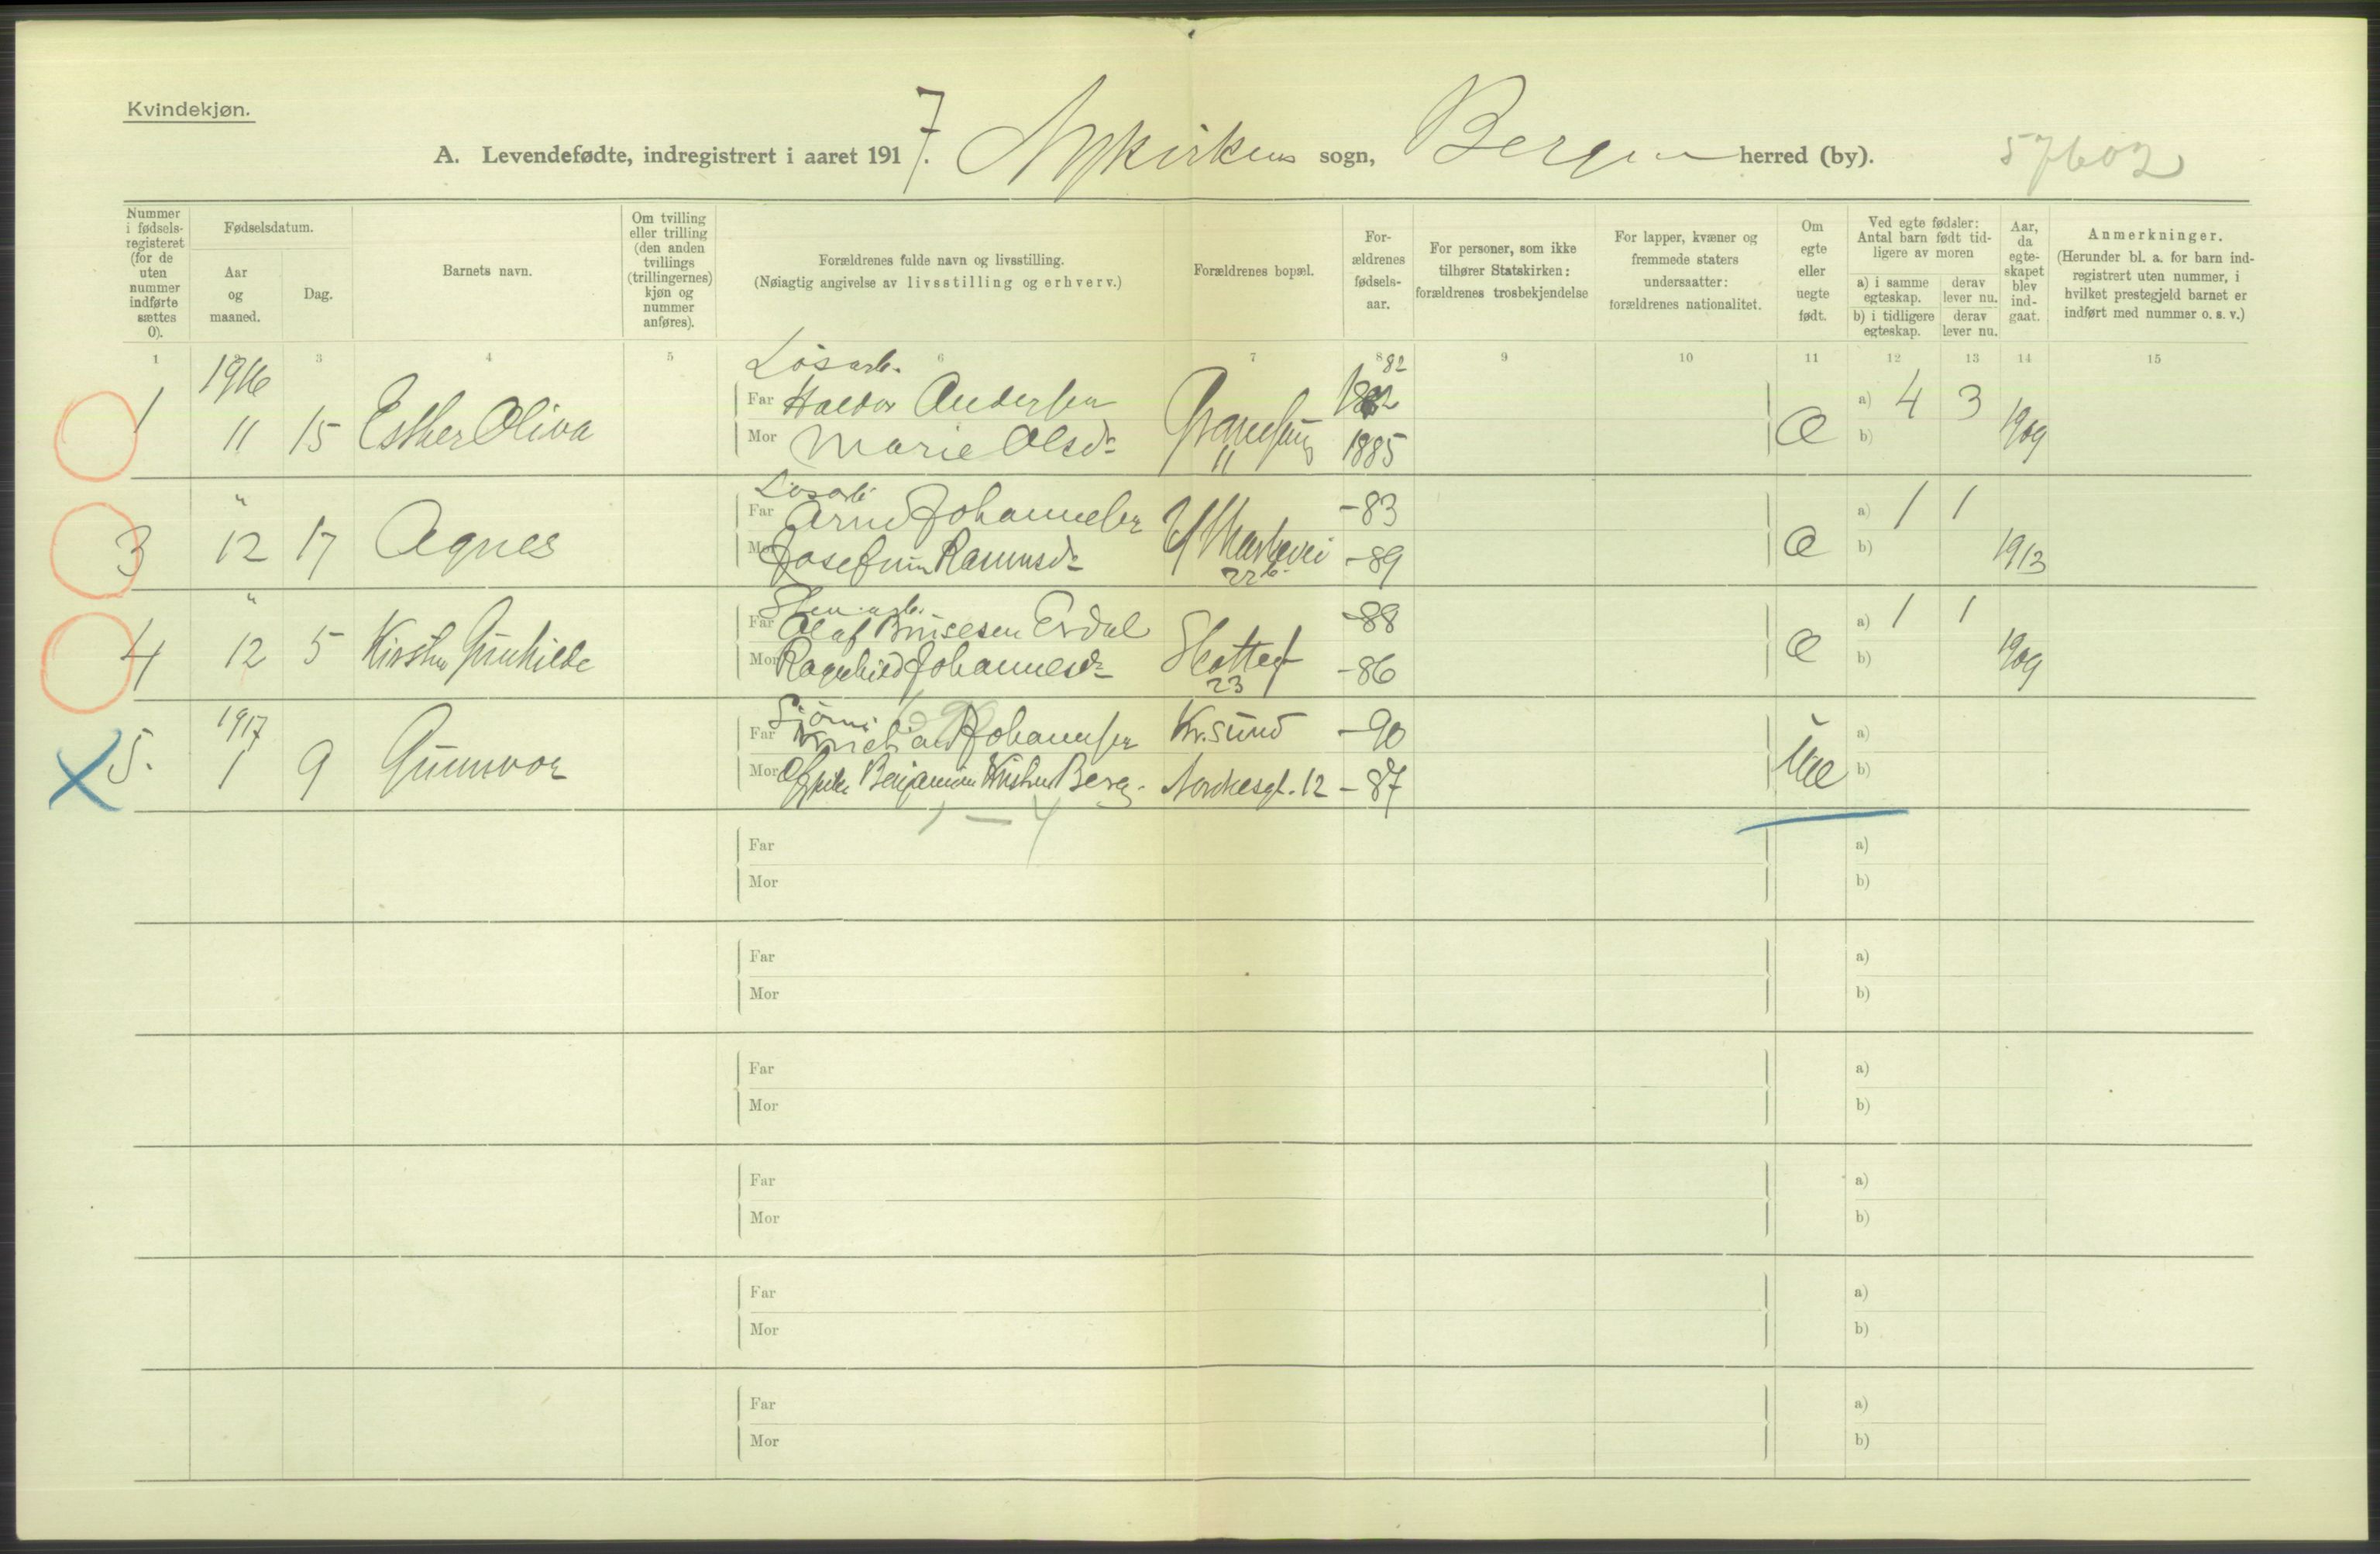 Kvindekjøn.
A. Levendefødte, indregistrert i aaret 1917. Nykirkens sogn, Bergen herred (by). 57602
Nummer i fødsels-registeret (for de uten nummer indførte sættes 0).
Fødselsdatum.
Aar og maaned.
Dag.
Barnets navn.
Om tvilling eller trilling (den anden tvillings (trillingernes) kjøn og nummer anføres).
Forældrenes fulde navn og livsstilling.
(Nøiagtig angivelse av livsstilling og erhverv.)
Forældrenes bopæl.
For-ældrenes fødsels-aar.
For personer, som ikke tilhører Statskirken: forældrenes trosbekjendelse
For lapper, kvæner og fremmede staters undersaatter: forældrenes nationalitet.
Om egte eller uegte født.
Ved egte fødsler: Antal barn født tid-ligere av moren
a) i samme egteskap.
derav lever nu.
b) i tidligere egteskap.
derav lever nu.
Aar, da egte-skapet blev ind-gaat.
Anmerkninger.
(Herunder bl. a. for barn ind-registrert uten nummer, i hvilket prestegjeld barnet er indført med nummer o. s. v.)
1 3 4 5 6 7 8 9 10 11 12 13 14 15
1916
Løsarb. 82
1 11 15 Esther Oliva
Far Haldor Andersen 1882 a) 4 3
Mor Marie Olsdr 11 1885 b) 1909
Løsarb.
3 " 12 17 Agnes
Far Arne Johannesen -83 a) 1 1
Mor Rasmusdr 22b -89 b) 1913
4 " 12 5 Kirsten Gunhilde
Far Olaf Erdal -88 a) 1 1
Mor Ragnhild Johannesdr 23 -86 b) 1909
1917
5. 1 9 Gunnvor
Far Johannesen Kr.sund -90 a)
Mor Berg. Nordnesgt. 12 -87 Ue b)
1 — 4
Far a)
Mor b)
Far a)
Mor b)
Far a)
Mor b)
Far a)
Mor b)
Far a)
Mor b)
Far a)
Mor b)